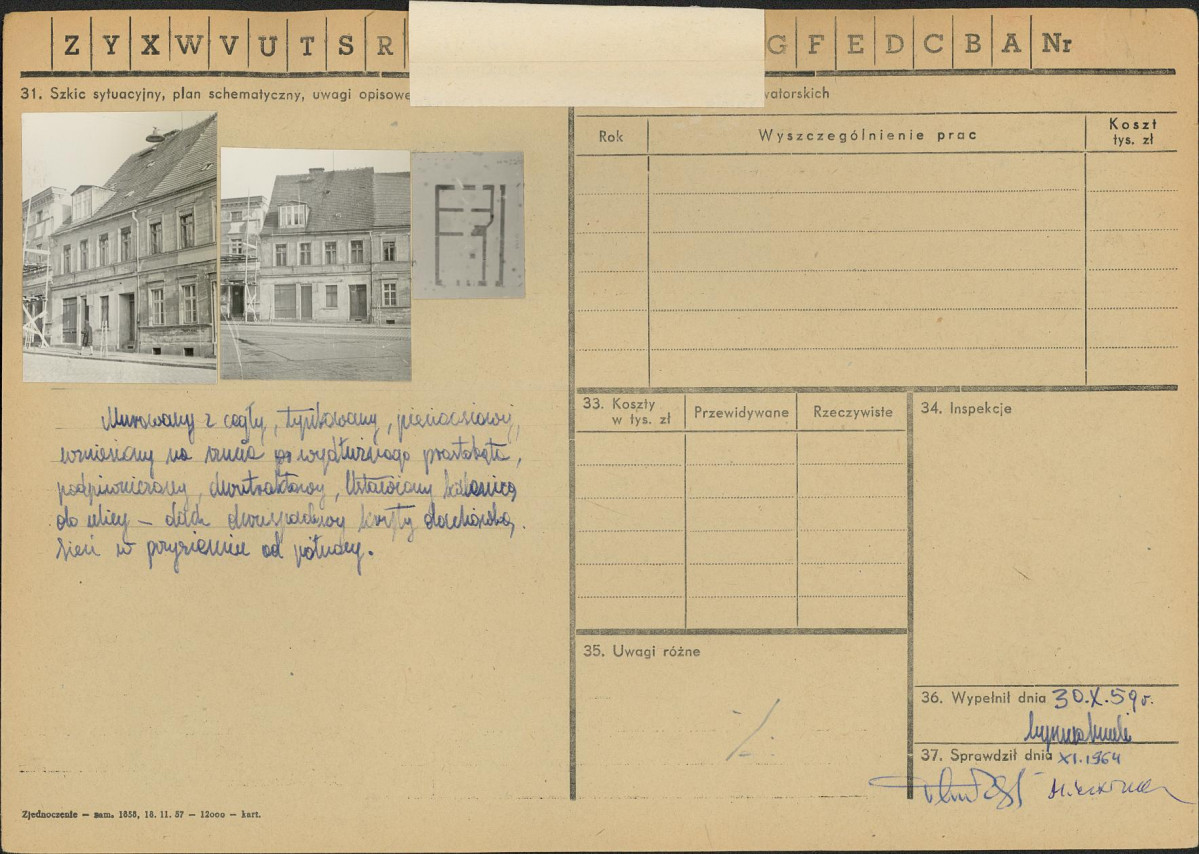 Z Y X W V U T S R G F E D C B A Nr
31. Szkic sytuacyjny, plan schematyczny, uwagi opisowe
watorskich
Rok Wyszczególnienie prac Koszt
tys. zł
Murowany z cegły, tynkowany, pięcioosiowy,
wzniesiony na rzucie wydłużonego prostokąta,
podpiwniczony, dwutraktowy, Ustawiony kalenicą
do ulicy – dach dwuspadowy kryty dachówką,
Sień w przyziemiu od północy.
33. Koszty
w tys. zł
Przewidywane
Rzeczywiste
34. Inspekcje
35. Uwagi różne
36. Wypełnił dnia 30.X.59 r.
37. Sprawdził dnia XI.1964
Zjednoczenie — zam. 1858, 18. 11. 57 — 12000 — kart.